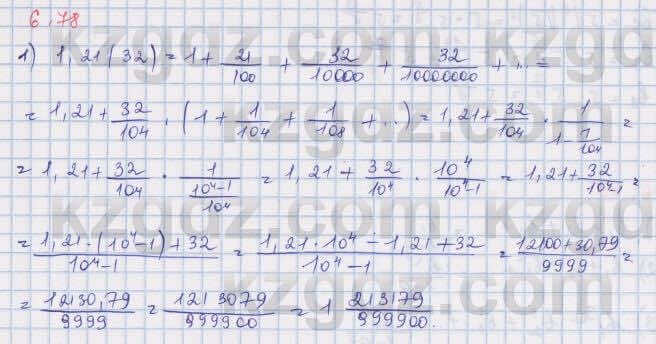 6.78
1) 1,21(32) = 1 + 21/100 + 32/10000 + 32/10000000 + .. =
= 1,21 + 32/104 · (1 + 1/104 + 1/108 + ..) = 1,21 + 32/104 · 1/(1 - 1/104) =
= 1,21 + 32/104 · 1/((10⁴-1)/104) = 1,21 + 32/10⁴ · 10⁴/(10⁴-1) = 1,21 + 32/(10⁴-1) =
= (1,21 · (10⁴-1) + 32)/(10⁴-1) = (1,21 · 10⁴ - 1,21 + 32)/(10⁴-1) = (12100 + 30,79)/9999 =
= 12130,79/9999 = 1213079/999900 = 1 213179/999900.
kzgdz.com
kzgdz.com
kzgdz.com
kzgdz.com